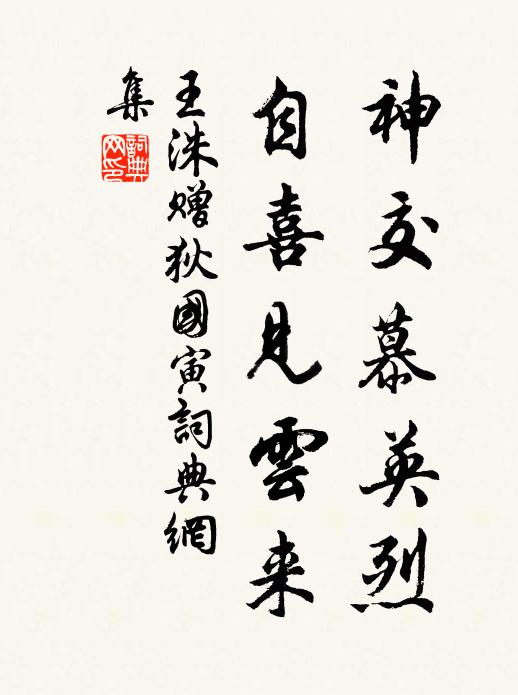 神交慕英烈
自喜見雲来
王洙赠狄國寅詞典網
集
詞典網印